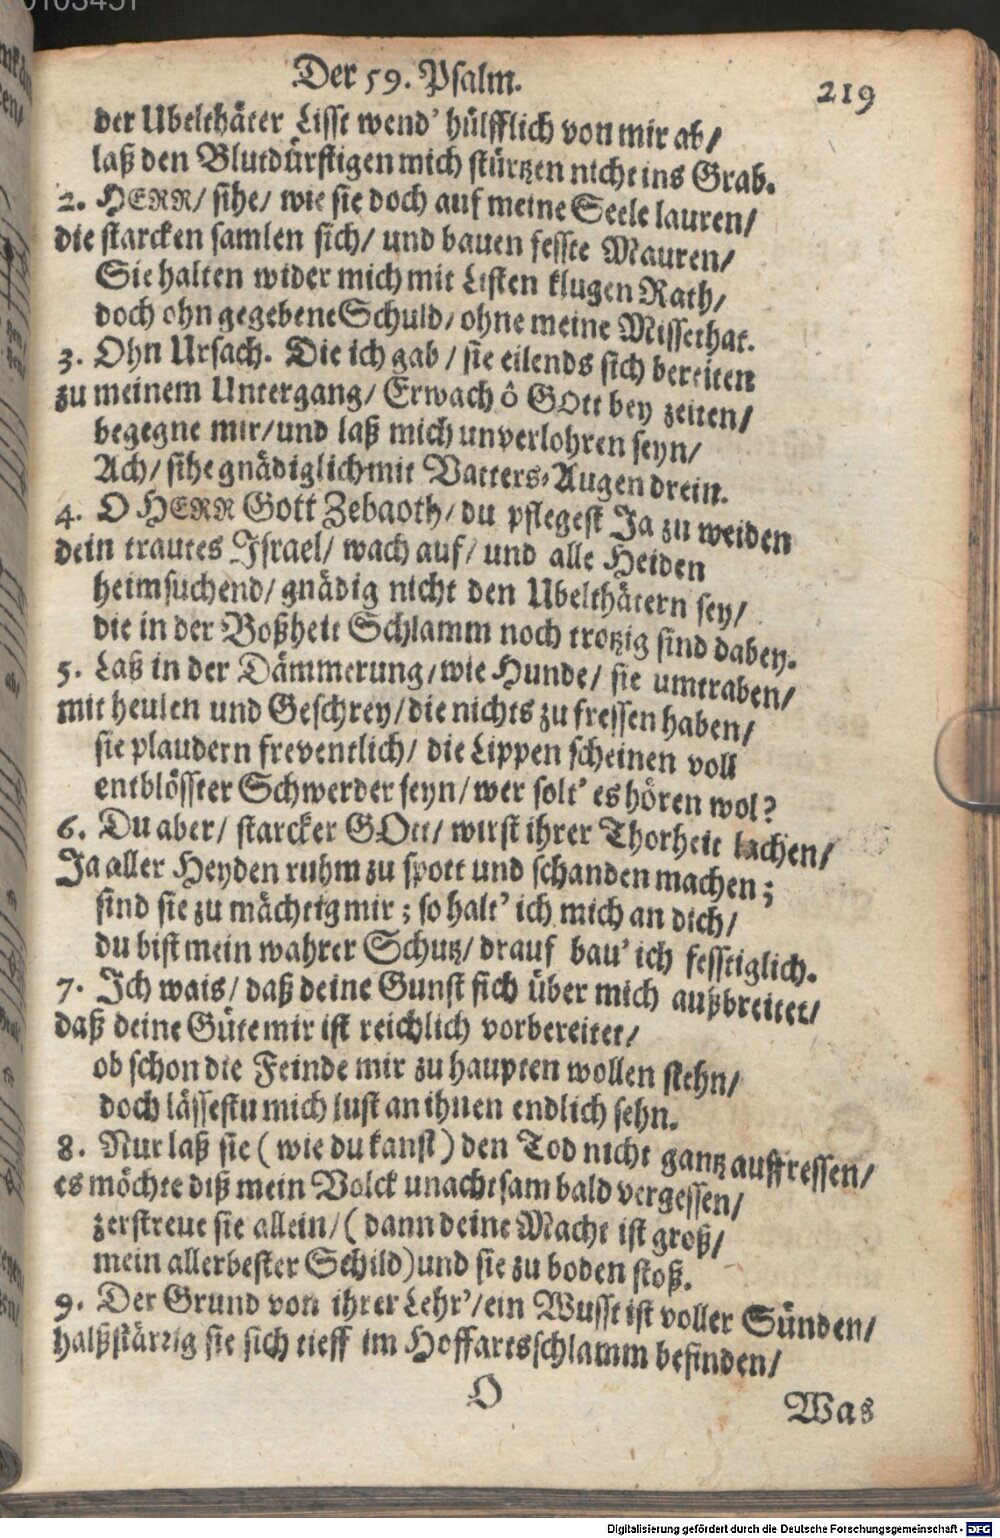 Der 59. Psalm.
219
der Ubelthäter Lisst wend' hülfflich von mir ab/
laß den Blutdürstigen mich stürtzen nicht ins Grab.
2. HERR/ sihe/ wie sie doch auf meine Seele lauren/
die starcken samlen sich/ und bauen fesste Mauren/
Sie halten wider mich mit Listen klugen Rath/
doch ohn gegebene Schuld/ ohne meine Missethat.
3. Ohn Ursach. Die ich gab/ sie eilends sich bereiten
zu meinem Untergang/ Erwach ô GOtt bey zeiten/
begegne mir/ und laß mich unverlohren seyn/
Ach/ sihe gnädiglich mit Vatters-Augen drein.
4. O HERR Gott Zebaoth/ du pflegest Ja zu weiden
dein trautes Israel/ wach auf/ und alle Heiden
heimsuchend/ gnädig nicht den Ubelthätern sey/
die in der Boßheit Schlamm noch trotzig sind dabey.
5. Laß in der Dämmerung/ wie Hunde/ sie umtraben/
mit heulen und Geschrey/ die nichts zu fressen haben/
sie plaudern freventlich/ die Lippen scheinen voll
entblösster Schwerder seyn/ wer solt' es hören wol?
6. Du aber/ starcker GOtt/ wirst ihrer Thorheit lachen/
Ja aller Heyden ruhm zu spott und schanden machen;
sind sie zu mächtig mir; so halt' ich mich an dich/
du bist mein wahrer Schutz/ drauf bau' ich fesstiglich.
7. Ich wais/ daß deine Gunst sich über mich außbreitet/
daß deine Güte mir ist reichlich vorbereitet/
ob schon die Feinde mir zu haupten wollen stehn/
doch lässestu mich lust an ihnen endlich sehn.
8. Nur laß sie (wie du kanst) den Tod nicht gantz auffressen/
es möchte diß mein Volck unachtsam bald vergessen/
zerstreue sie allein/ (dann deine Macht ist groß/
mein allerbester Schild) und sie zu boden stoß.
9. Der Grund von ihrer Lehr'/ ein Wusst ist voller Sünden/
halßstärrig sie sich tieff im Hoffartsschlamm befinden/
O
Was
Digitalisierung gefördert durch die Deutsche Forschungsgemeinschaft - DFG